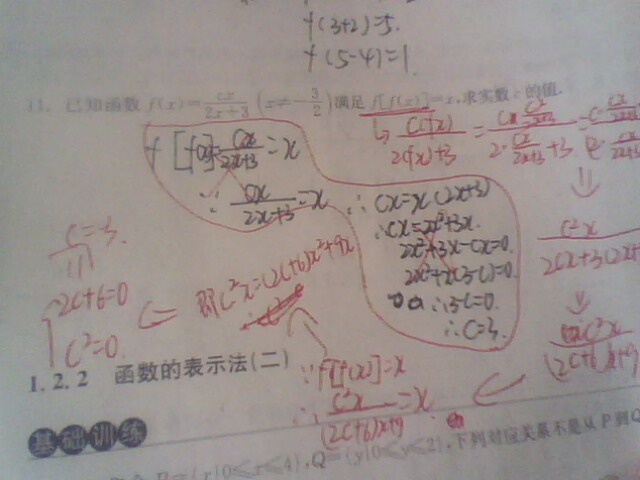 f(3+2)=5.
f(5-4)=1.
11. 已知函数 f(x)=cx/(2x+3) (x≠-3/2)满足 f[f(x)]=x,求实数 c 的值.
f[f(x)]=cx/(2x+3)=x
∵ cx/(2x+3)=x
∴ cx=x(2x+3)
∴ cx=2x²+3x.
2x²+3x-cx=0.
2x²+x(3-c)=0.
∴3-c=0.
∴c=3.
c·f(x)/(2f(x)+3)
c²x
2cx+3(2x+
c²x
(2c+6)x+9
∵f[f(x)]=x
∴ c²x/((2c+6)x+9)=x.
即c²x=(2c+6)x²+9x
2c+6=0
c²=0.
c=3.
1.2.2 函数的表示法(二)
基础训练
P={x|0≤x≤4},Q={y|0≤y≤2},下列对应关系不是从P到Q